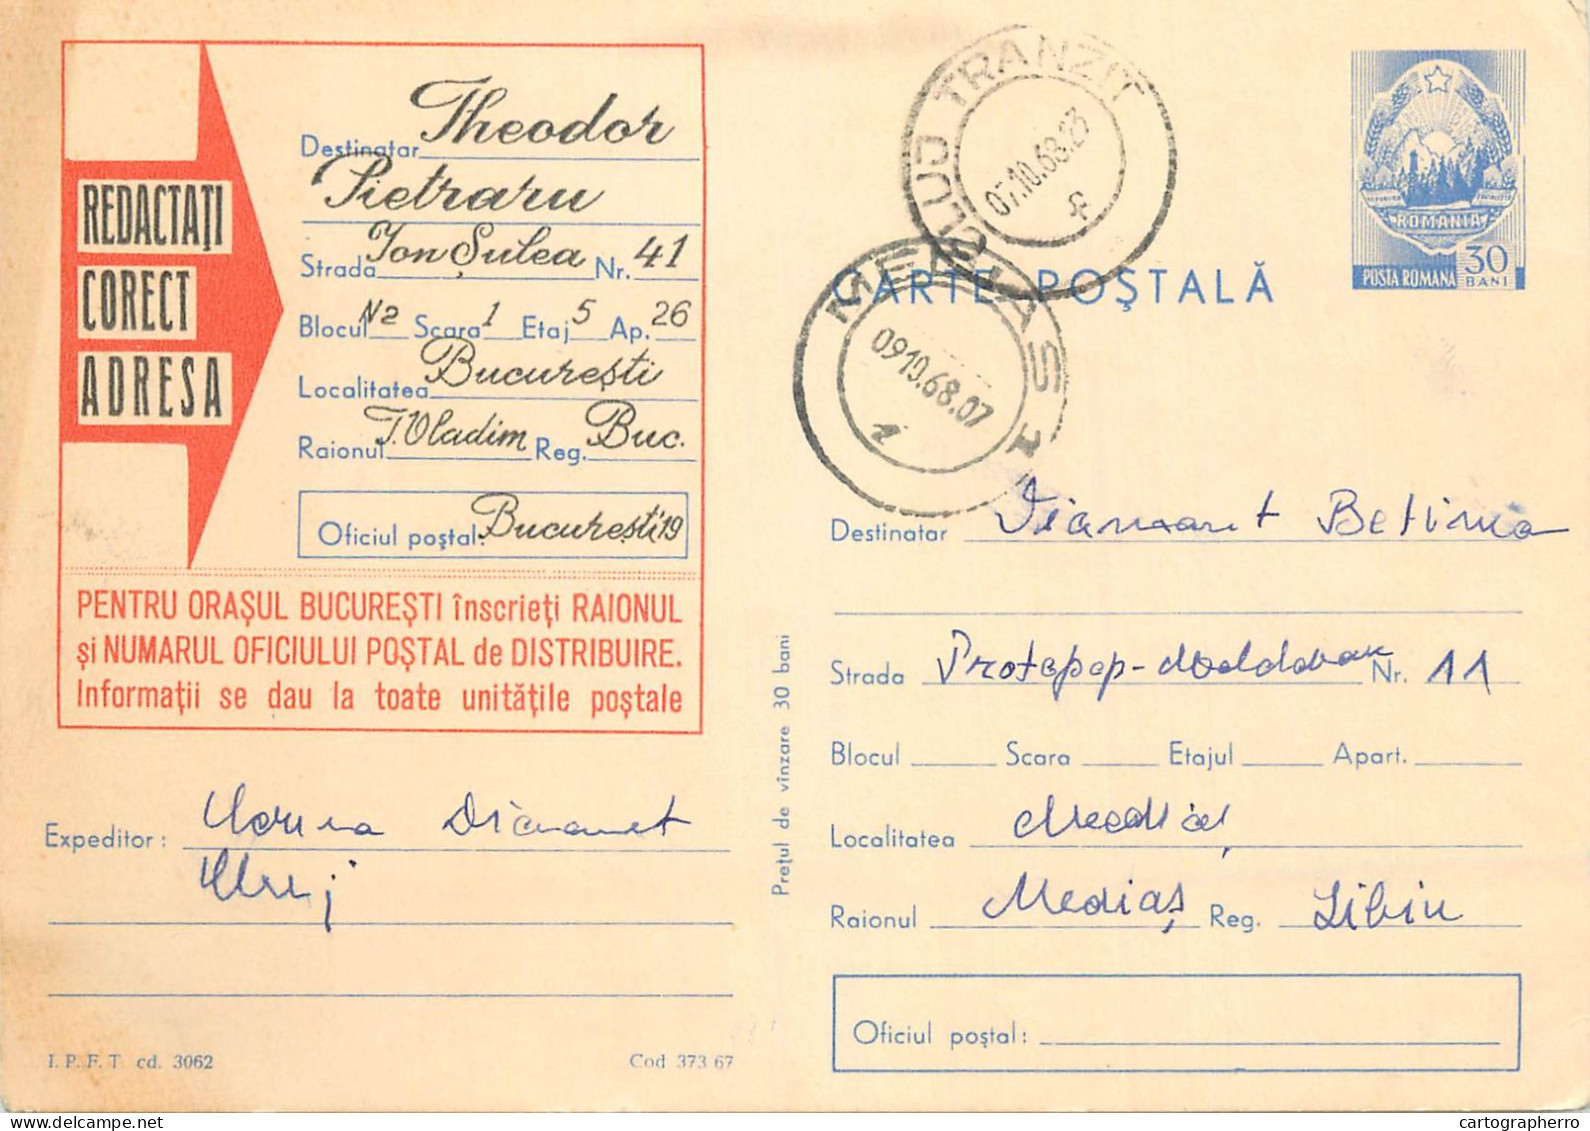 REDACTAȚI
CORECT
ADRESA
Destinatar Theodor
Pietraru
Strada Ion Șulea Nr. 41
Blocul N2 Scara 1 Etaj 5 Ap. 26
Localitatea București
Raionul T. Vladim Reg. Buc.
Oficiul poștal: București 19
PENTRU ORAȘUL BUCUREȘTI înscrieți RAIONUL
și NUMARUL OFICIULUI POȘTAL de DISTRIBUIRE.
Informații se dau la toate unitățile poștale
Expeditor: Diamant
Cluj
I. P. F. T. cd. 3062
Cod 373 67
Prețul de vînzare 30 bani
CLUJ TRANZIT
07.10.68.23
MEDIAȘ 1
09.10.68.07
ROMANIA
POSTA ROMANA 30 BANI
CARTE POȘTALĂ
Destinatar Diamant Betina
Strada Protopop-Moldovan Nr. 11
Blocul Scara Etajul Apart.
Localitatea Mediaș
Raionul Mediaș Reg. Sibiu
Oficiul poștal:
cartographerro